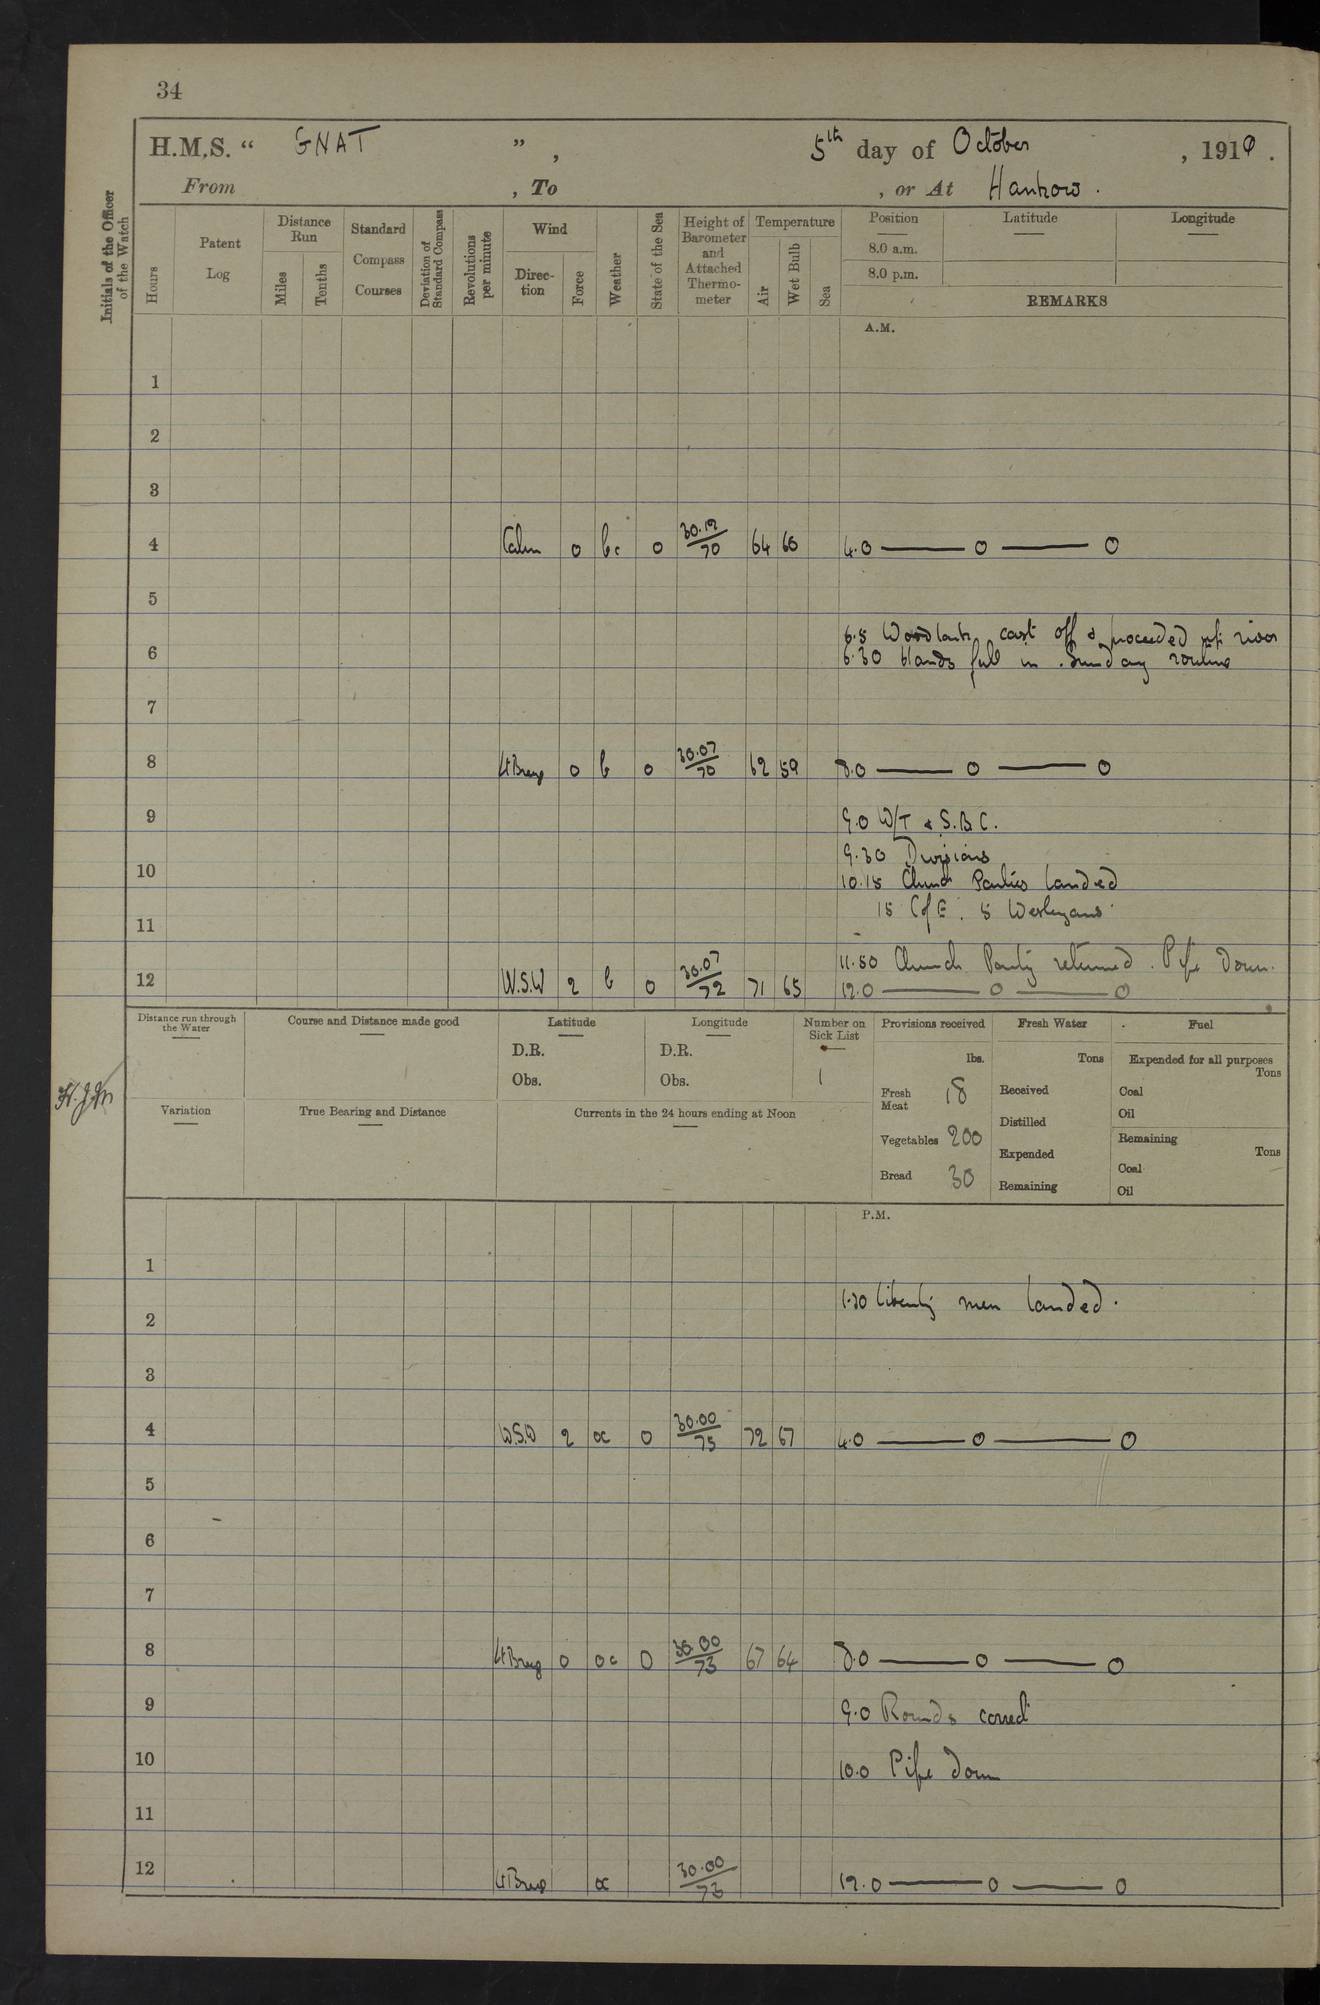 34
H.M.S. “ GNAT ” , 5th day of October , 1919 .
From , To , or At Hankow .
Initials of the Officer of the Watch
Hours
Patent Log
Distance Run
Miles
Tenths
Standard Compass Courses
Deviation of Standard Compass
Revolutions per minute
Wind
Direc-tion
Force
Weather
State of the Sea
Height of Barometer and Attached Thermo-meter
Temperature
Air
Wet Bulb
Sea
Position Latitude Longitude
8.0 a.m.
8.0 p.m.
REMARKS
A.M.
1
2
3
4 Calm 0 bc 0 30.12/70 64 60 4.0 — 0 — 0
5
6.5 Woodlark cast off & proceeded up river
6 6.30 Hands fell in . Sunday routine
7
8 Lt Breeze 0 b 0 30.07/70 62 59 8.0 — 0 — 0
9 9.0 W/T & S.B.C.
9.30 Divisions
10 10.15 Church Parties landed
11 15 C of E. 5 Wesleyans
11.50 Church Party returned . Pipe down.
12 W.S.W 2 b 0 30.07/72 71 65 12.0 — 0 — 0
Distance run through the Water
Course and Distance made good
Latitude
D.R.
Obs.
Longitude
D.R.
Obs.
Number on Sick List
1
Provisions received
lbs.
Fresh Meat 18
Vegetables 200
Bread 30
Fresh Water
Tons
Received
Distilled
Expended
Remaining
Fuel
Expended for all purposes
Tons
Coal
Oil
Remaining
Tons
Coal
Oil
Variation
True Bearing and Distance
Currents in the 24 hours ending at Noon
P.M.
1
1.30 liberty men landed .
2
3
4 W.S.W 2 oc 0 30.00/75 72 67 4.0 — 0 — 0
5
6
7
8 Lt Breeze 0 oc 0 30.00/73 67 64 8.0 — 0 — 0
9 9.0 Rounds correct
10 10.0 Pipe down
11
12 Lt Breeze oc 30.00/73 12.0 — 0 — 0